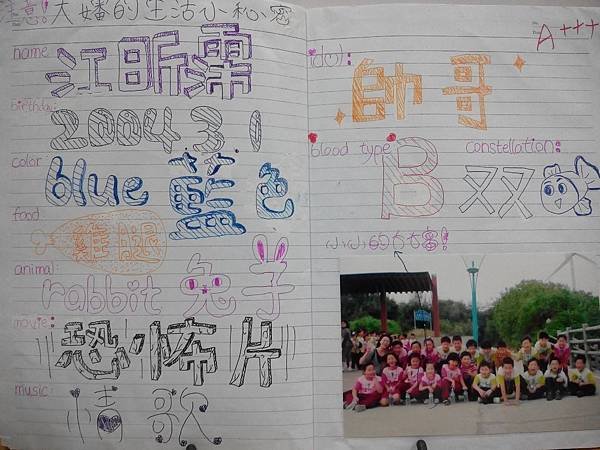 注意!大嬸的生活小秘密
name: 江昕霈
birthday: 2004.3.1
color: blue 藍色
food: 雞腿
animal: rabbit 兔子
movie: 恐怖片
music: 情歌
A+++
idol: 帥哥
blood type: B constellation: 双
小小的